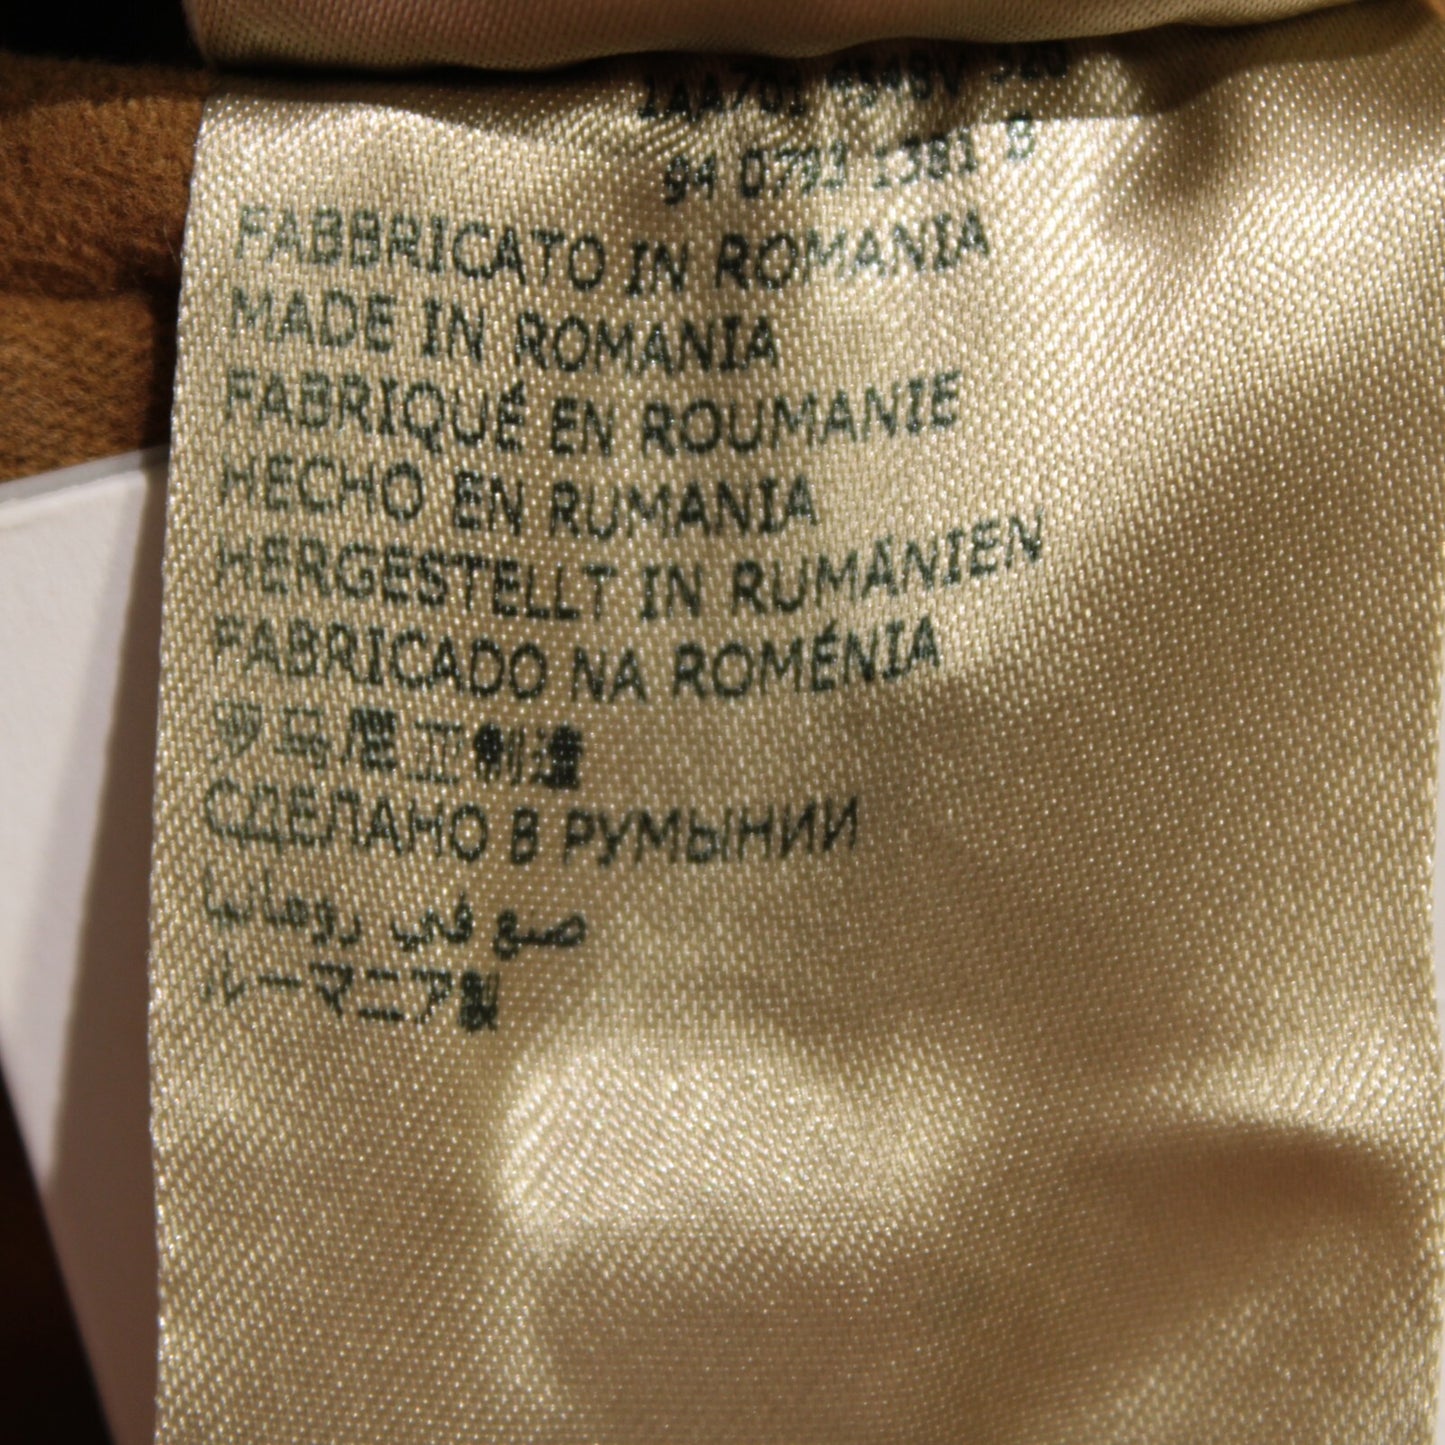 1AA701
94 0793 1381 8
FABBRICATO IN ROMANIA
MADE IN ROMANIA
FABRIQUÉ EN ROUMANIE
HECHO EN RUMANIA
HERGESTELLT IN RUMÄNIEN
FABRICADO NA ROMÉNIA
罗马尼亚制造
СДЕЛАНО В РУМЫНИИ
صنع في رومانيا
ルーマニア製